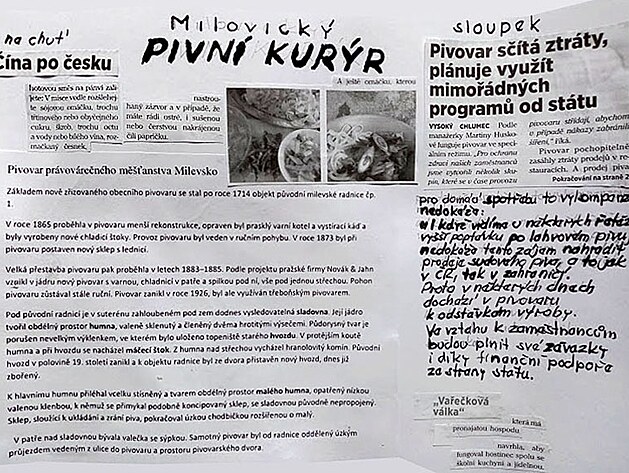 na chuť
Čína po česku
hotovou směs na pánvi zali-
jete: V misce vedle rozšlehej-
te sójovou omáčku, trochu
třtinového nebo obyčejného
cukru, škrob, trochu octu
a vody nebo bílého vína, roz-
mačkaný česnek,
nastrou-
haný zázvor a v případě, že
máte rádi ostré, i sušenou
nebo čerstvou nakrájenou
čili papričku.
Milovický
PIVNÍ KURÝR
A ještě omáčku, kterou
Pivovar právovárečného měšťanstva Milevsko
Základem nově zřizovaného obecního pivovaru se stal po roce 1714 objekt původní milevské radnice čp.
1.
V roce 1865 proběhla v pivovaru menší rekonstrukce, opraven byl prasklý varní kotel a vystírací káď a
byly vyrobeny nové chladící štoky. Provoz pivovaru byl veden v ručním pohybu. V roce 1873 byl při
pivovaru postaven nový sklep s lednicí.
Velká přestavba pivovaru pak proběhla v letech 1883–1885. Podle projektu pražské firmy Novák & Jahn
vznikl v jádru nový pivovar s varnou, chladící v patře a spilkou pod ní, vše pod jednou střechou. Pohon
pivovaru zůstával stále ruční. Pivovar zanikl v roce 1926, byl ale využíván třeboňským pivovarem.
Pod původní radnicí je v suterénu zahloubeném pod zem dodnes vyledovatelná sladovna. Její jádro
tvořil obdélný prostor humna, valeně sklenutý a členěný dvěma hrotitými výsečemi. Půdorysný tvar je
porušen nevelkým výklenkem, ve kterém bylo uloženo topeniště starého hvozdu. V protějším koutě
humna a při hvozdu se nacházel máčecí štok. Z humna nad střechou vycházel hranolovitý komín. Původní
hvozd v polovině 19. století zanikl a k objektu radnice byl ze dvora přistavěn nový hvozd, dnes již
zbořený.
K hlavnímu humnu přiléhal vcelku stísněný a tvarem obdélný prostor malého humna, opatřený nízkou
valenou klenbou, k němuž se přimykal podobně koncipovaný sklep, se sladovnou původně nepropojený.
Sklep, sloužící k ukládání a zrání piva, pokračoval úzkou chodbičkou rozšířenou o malý.
V patře nad sladovnou bývala valečka se sýpkou. Samotný pivovar byl od radnice oddělený úzkým
průjezdem vedeným z ulice do pivovaru a prostoru pivovarského dvora.
sloupek
Pivovar sčítá ztráty,
plánuje využít
mimořádných
programů od státu
VYSOKÝ CHLUMEC Podle
manažerky Martiny Husko-
vé funguje pivovar ve speci-
álním režimu. „Pro ochranu
zdraví našich zaměstnanců
jsme vytvořili několik sku-
pin, které se v čase provozu
pivovaru střídají, abychom
v případě nákazy zabránili
šíření,“ říká.
Pivovar pochopitelně
zasáhly ztráty prodejů v re-
stauracích. A prodej piva
Pokračování na straně 2
pro domácí spotřebu to vykompenzovat
nedokáže:
a i když vidíme u některých řetězců
vyšší poptávku po lahvovém pivu,
nedokáže tento zájem nahradit
prodeje sudového piva, a to jak
v ČR, tak v zahraničí.
Proto v některých dnech
dochází v pivovaru
k odstávkám výroby.
Ve vztahu k zaměstnancům
budou plnit své závazky
i díky finanční podpoře
ze strany státu.
„Vařečková
válka“
která má
pronajatou hospodu
navrhla, aby
fungoval hostinec spolu se
školní kuchyní a jídelnou,